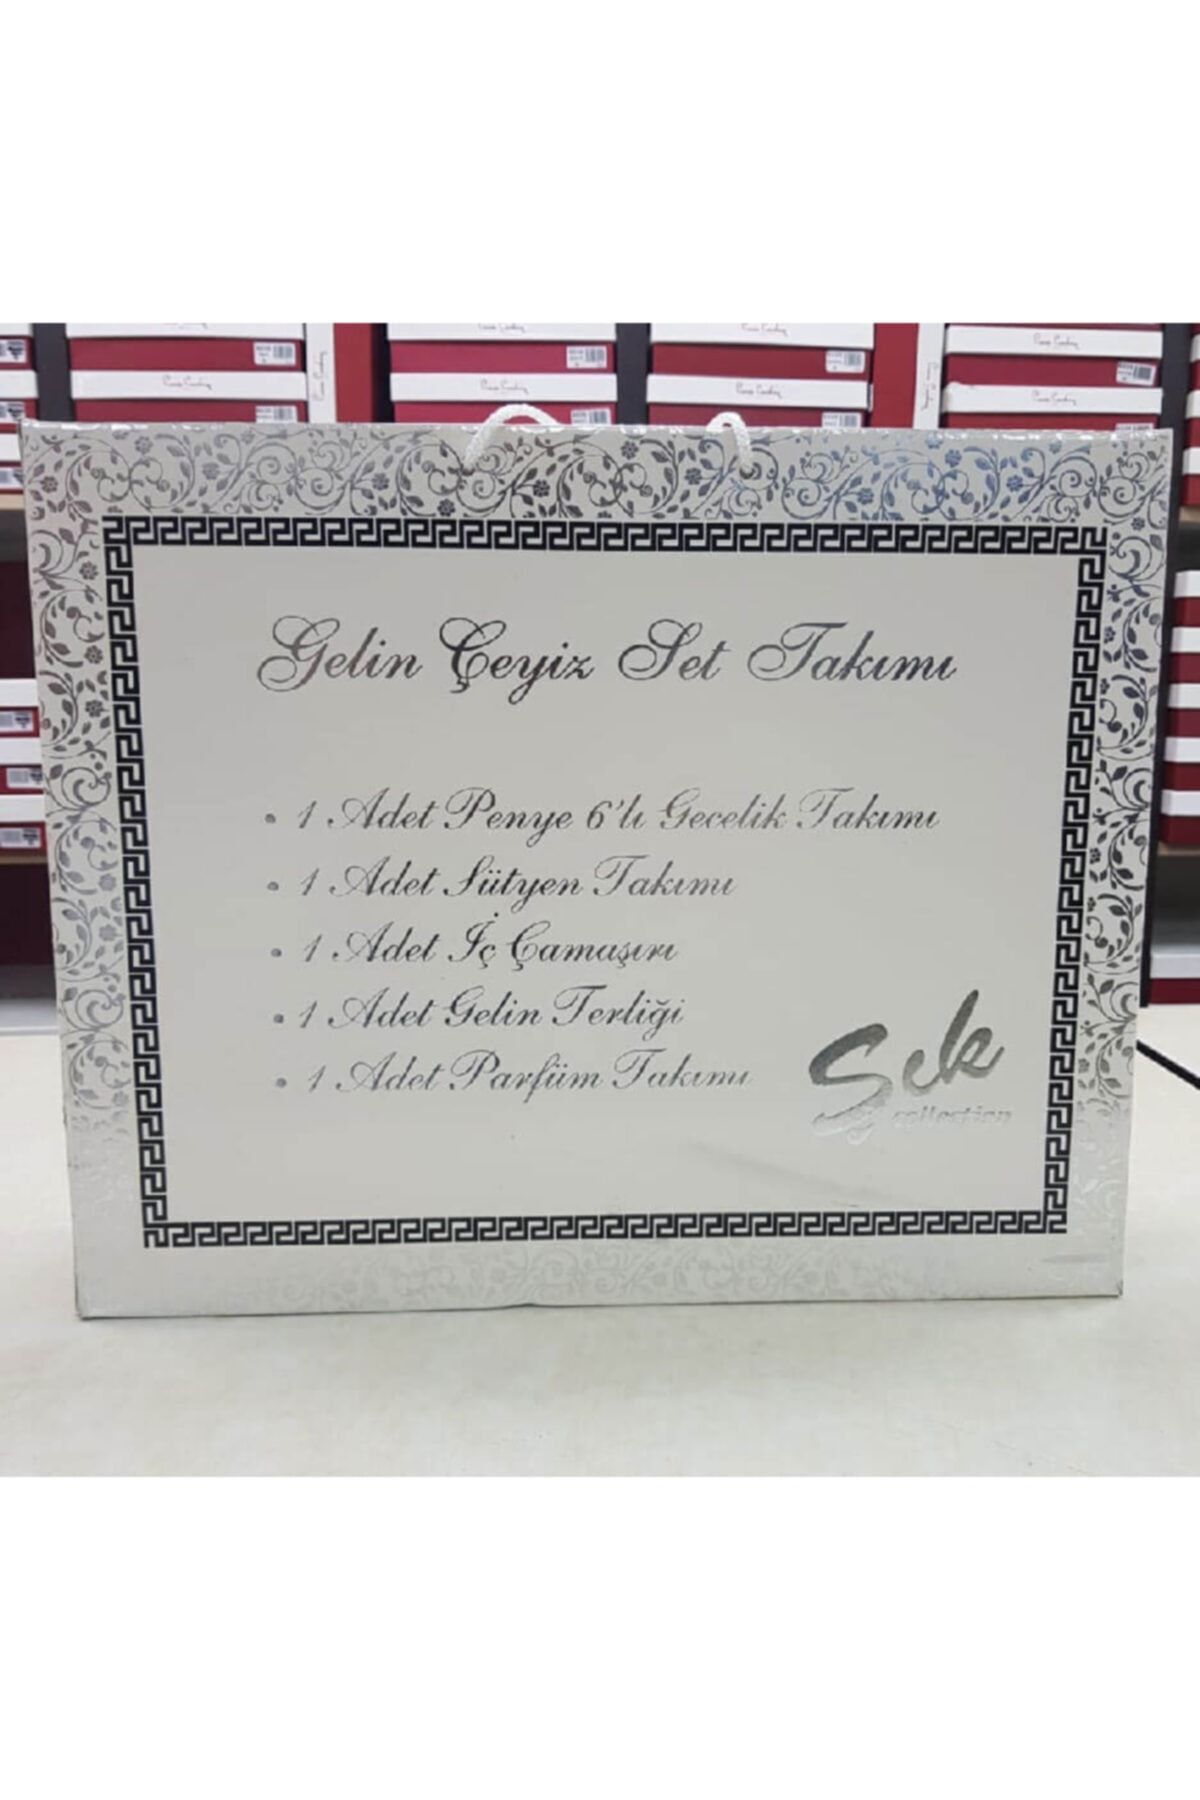 Gelin Çeyiz Set Takımı
• 1 Adet Penye 6'lı Gecelik Takımı
• 1 Adet Sütyen Takımı
• 1 Adet İç Çamaşırı
• 1 Adet Gelin Terliği
• 1 Adet Parfüm Takımı
Sek
collection